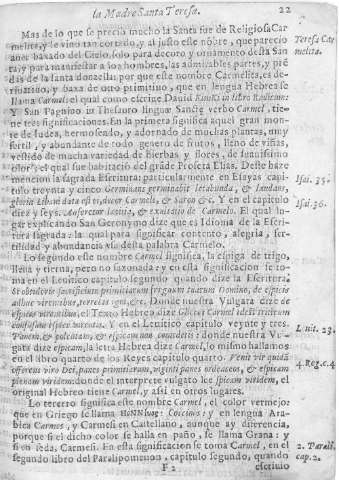 la Madre Santa Teresa. 22
Mas de lo que se precio mucho la Santa fue de Religiosa Car
melita, y le vino tan cortado, y al justo este nõbre, que parecio
auer baxado del Cielo, solo para decoro y ornamento desta San
ta, y para manifestar a los hombres, las admirables partes, y pré
das de la santa donzella: por que este nombre Carmelita, es de-
riuatiuo, y baxa de otro primitiuo, que en lengua Hebrea se
llama Carmel: el qual como escriue Dauid Kimki in libro Radicum:
Y San Pagnino in Thesauro linguæ Sanctæ verbo Carmel, tie-
ne tres significaciones. En la primera significa aquel gran mon-
te de Iudea, hermoseado, y adornado de muchas plantas, muy
fertil, y abundante de todo genero de frutos, lleno de viñas,
vestido de mucha variedad de hierbas y flores, de
color: y el qual fue habitacion del grãde Profeta Elias. Deste haze
mencion la sagrada Escritura particularmente en Esayas capi-
tulo treynta y cinco Germinans germinabit letabunda, & laudans,
gloria Libani data est ei, decor Carmeli, & Saron &c. Y en el capitulo
diez y seys. Auferetur letitia, & exultatio de Carmelo. El qual lu-
gar explicando San Geronymo dize que es Idioma de la Escri-
tura sagrada: la qual para significar contento, alegria, fer-
tilidad y abundancia vsa desta palabra Carmelo.
Lo segundo este nombre Carmel significa, la espiga de trigo,
llena y tierna, pero no sazonada: y en esta significacion se to-
ma en el Leuitico capitulo segundo quando dize la Escritura.
Si obtuleris sacrificium primitiarum frugum tuarum Domino, de spicis
adhuc virentibus, torrebis igni, &c. Donde nuestra Vulgata dize de
spicis virentibus, el Texto Hebreo dize Carmel idest
spicas virentes. Y en el Leuitico capitulo veynte y tres.
Panem, & polentam, & non comedetis: donde nuestra Vul
gata dize espicam, la letra Hebrea dize Carmel, lo mismo hallamos
en el libro quarto de los Reyes capitulo quarto. Venit vir quidã
offerens viro Dei, panes primitiarum, viginti panes ordeaceos, & spicam
plenam viridem: donde el interprete vulgato lee spicam viridem, el
original Hebreo tiene Carmel, y assi en otros lugares.
Lo tercero significa este nombre Carmel, el color vermejo:
que en Griego se llama Coccinos: y en lengua Ara-
biga Carmes, y Carmesi en Castellano, aunque ay diferencia,
porque si el dicho color se halla en paño, se llama Grana: y
si en seda, Carmesi. En esta significacion se toma Carmel, en el
segundo libro del Paralipomenon, capitulo segundo, quando
F 2 escriuio
Teresa Car
melita.
Isai. 35.
Isai. 36.
Leuit. 23.
4. Reg. c. 4
2. Paral.
cap. 2.